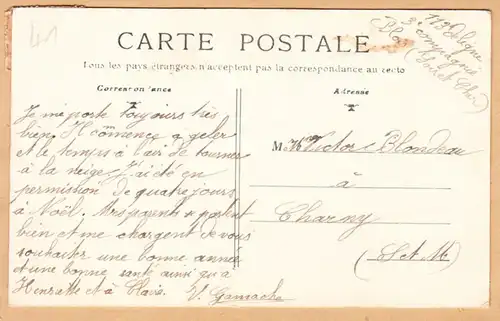 41
113e Ligne
3e Compagnie
Blois
(Loir et Cher)
CARTE POSTALE
Tous les pays étrangers n'acceptent pas la correspondance au recto
Correspondance
Adresse
Je me porte toujours très
bien. Il commence a geler
et le temps à l'air de tourner
à la neige J'ai été en
permission de quatre jours
à Noël. Mes parents se portent
bien et me chargent de vous
souhaiter une bonne année
et une bonne santé ainsi qu'à
Henriette et à Claire.
V. Gamache
M. Victor Blondeau
à
Charny
(S et M)